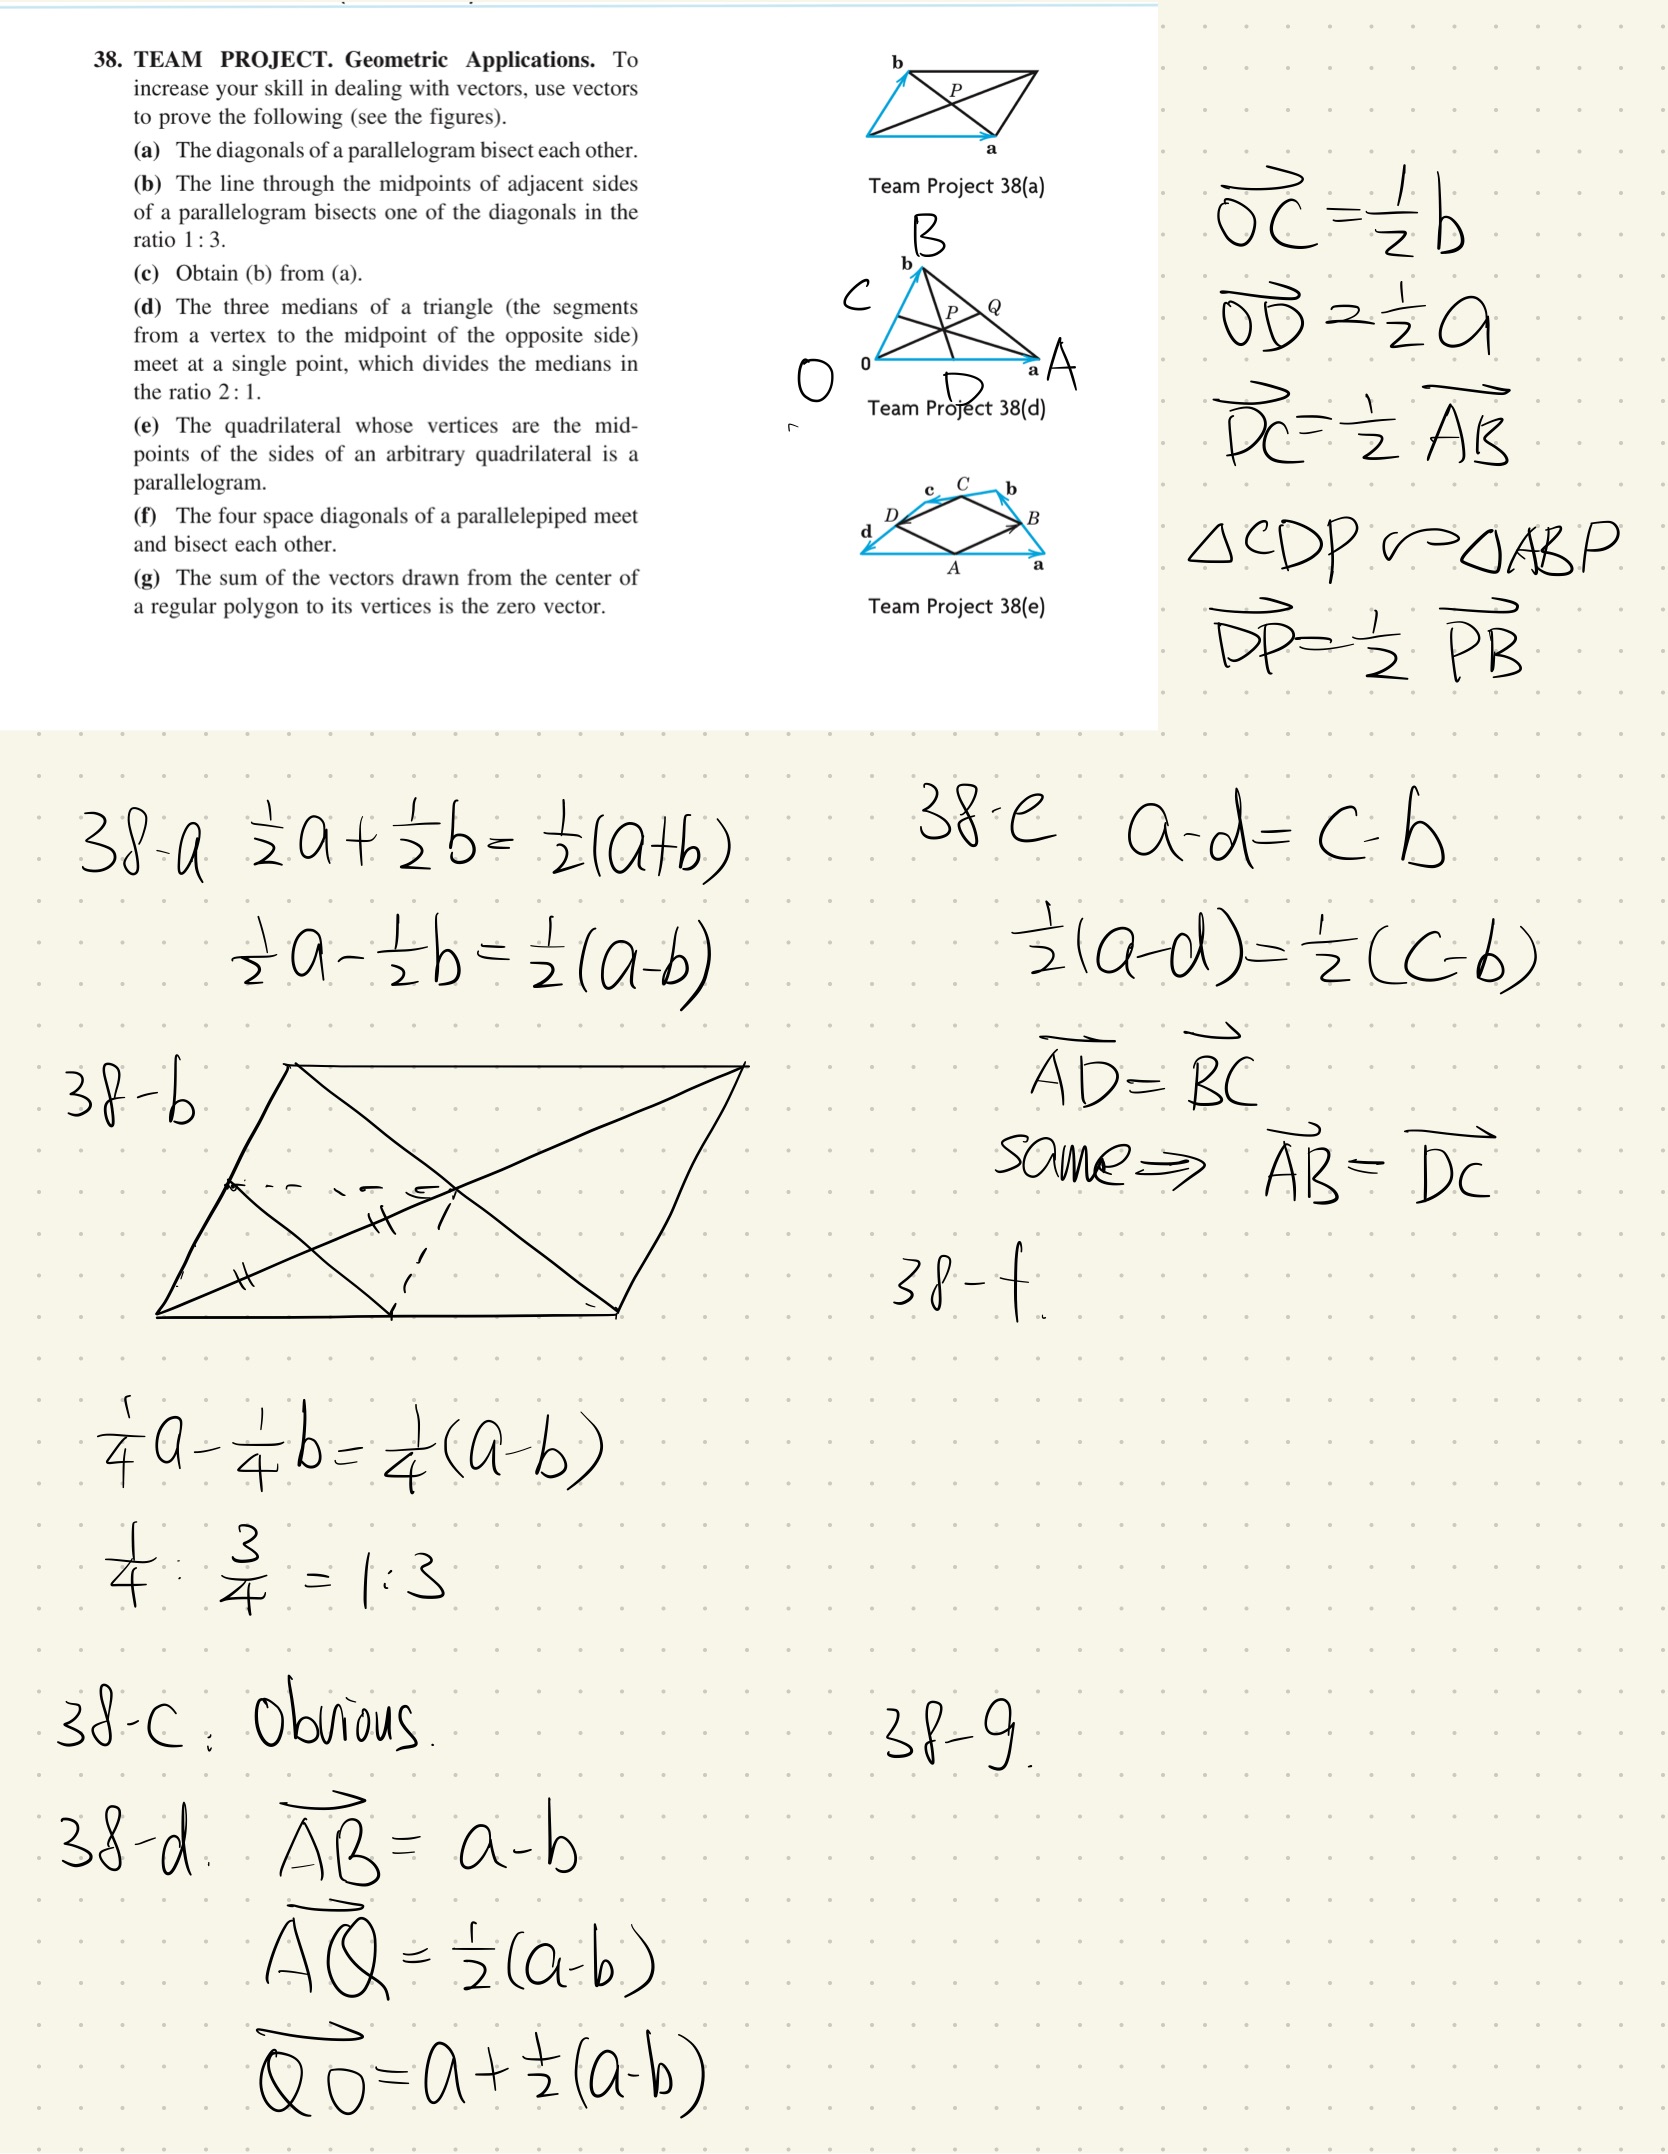 38. TEAM PROJECT. Geometric Applications. To
increase your skill in dealing with vectors, use vectors
to prove the following (see the figures).
(a) The diagonals of a parallelogram bisect each other.
(b) The line through the midpoints of adjacent sides
of a parallelogram bisects one of the diagonals in the
ratio 1:3.
(c) Obtain (b) from (a).
(d) The three medians of a triangle (the segments
from a vertex to the midpoint of the opposite side)
meet at a single point, which divides the medians in
the ratio 2:1.
(e) The quadrilateral whose vertices are the mid-
points of the sides of an arbitrary quadrilateral is a
parallelogram.
(f) The four space diagonals of a parallelepiped meet
and bisect each other.
(g) The sum of the vectors drawn from the center of
a regular polygon to its vertices is the zero vector.
b
P
a
Team Project 38(a)
B
b
C
P Q
O 0 D a A
Team Project 38(d)
c C b
D B
d
A a
Team Project 38(e)
OC⃗ = 1/2 b
OD⃗ = 1/2 a
DC⃗ = 1/2 AB⃗
△CDP ∽ △ABP
DP⃗ = 1/2 PB⃗
38-a 1/2 a + 1/2 b = 1/2 (a+b)
1/2 a - 1/2 b = 1/2 (a-b)
38-b
1/4 a - 1/4 b = 1/4 (a-b)
1/4 : 3/4 = 1:3
38-c: Obvious.
38-d. AB⃗ = a-b
AQ⃗ = 1/2 (a-b)
QO⃗ = a + 1/2 (a-b)
38-e a-d = c-b
1/2 (a-d) = 1/2 (c-b)
AD⃗ = BC⃗
same ⇒ AB⃗ = DC⃗
38-f.
38-g.